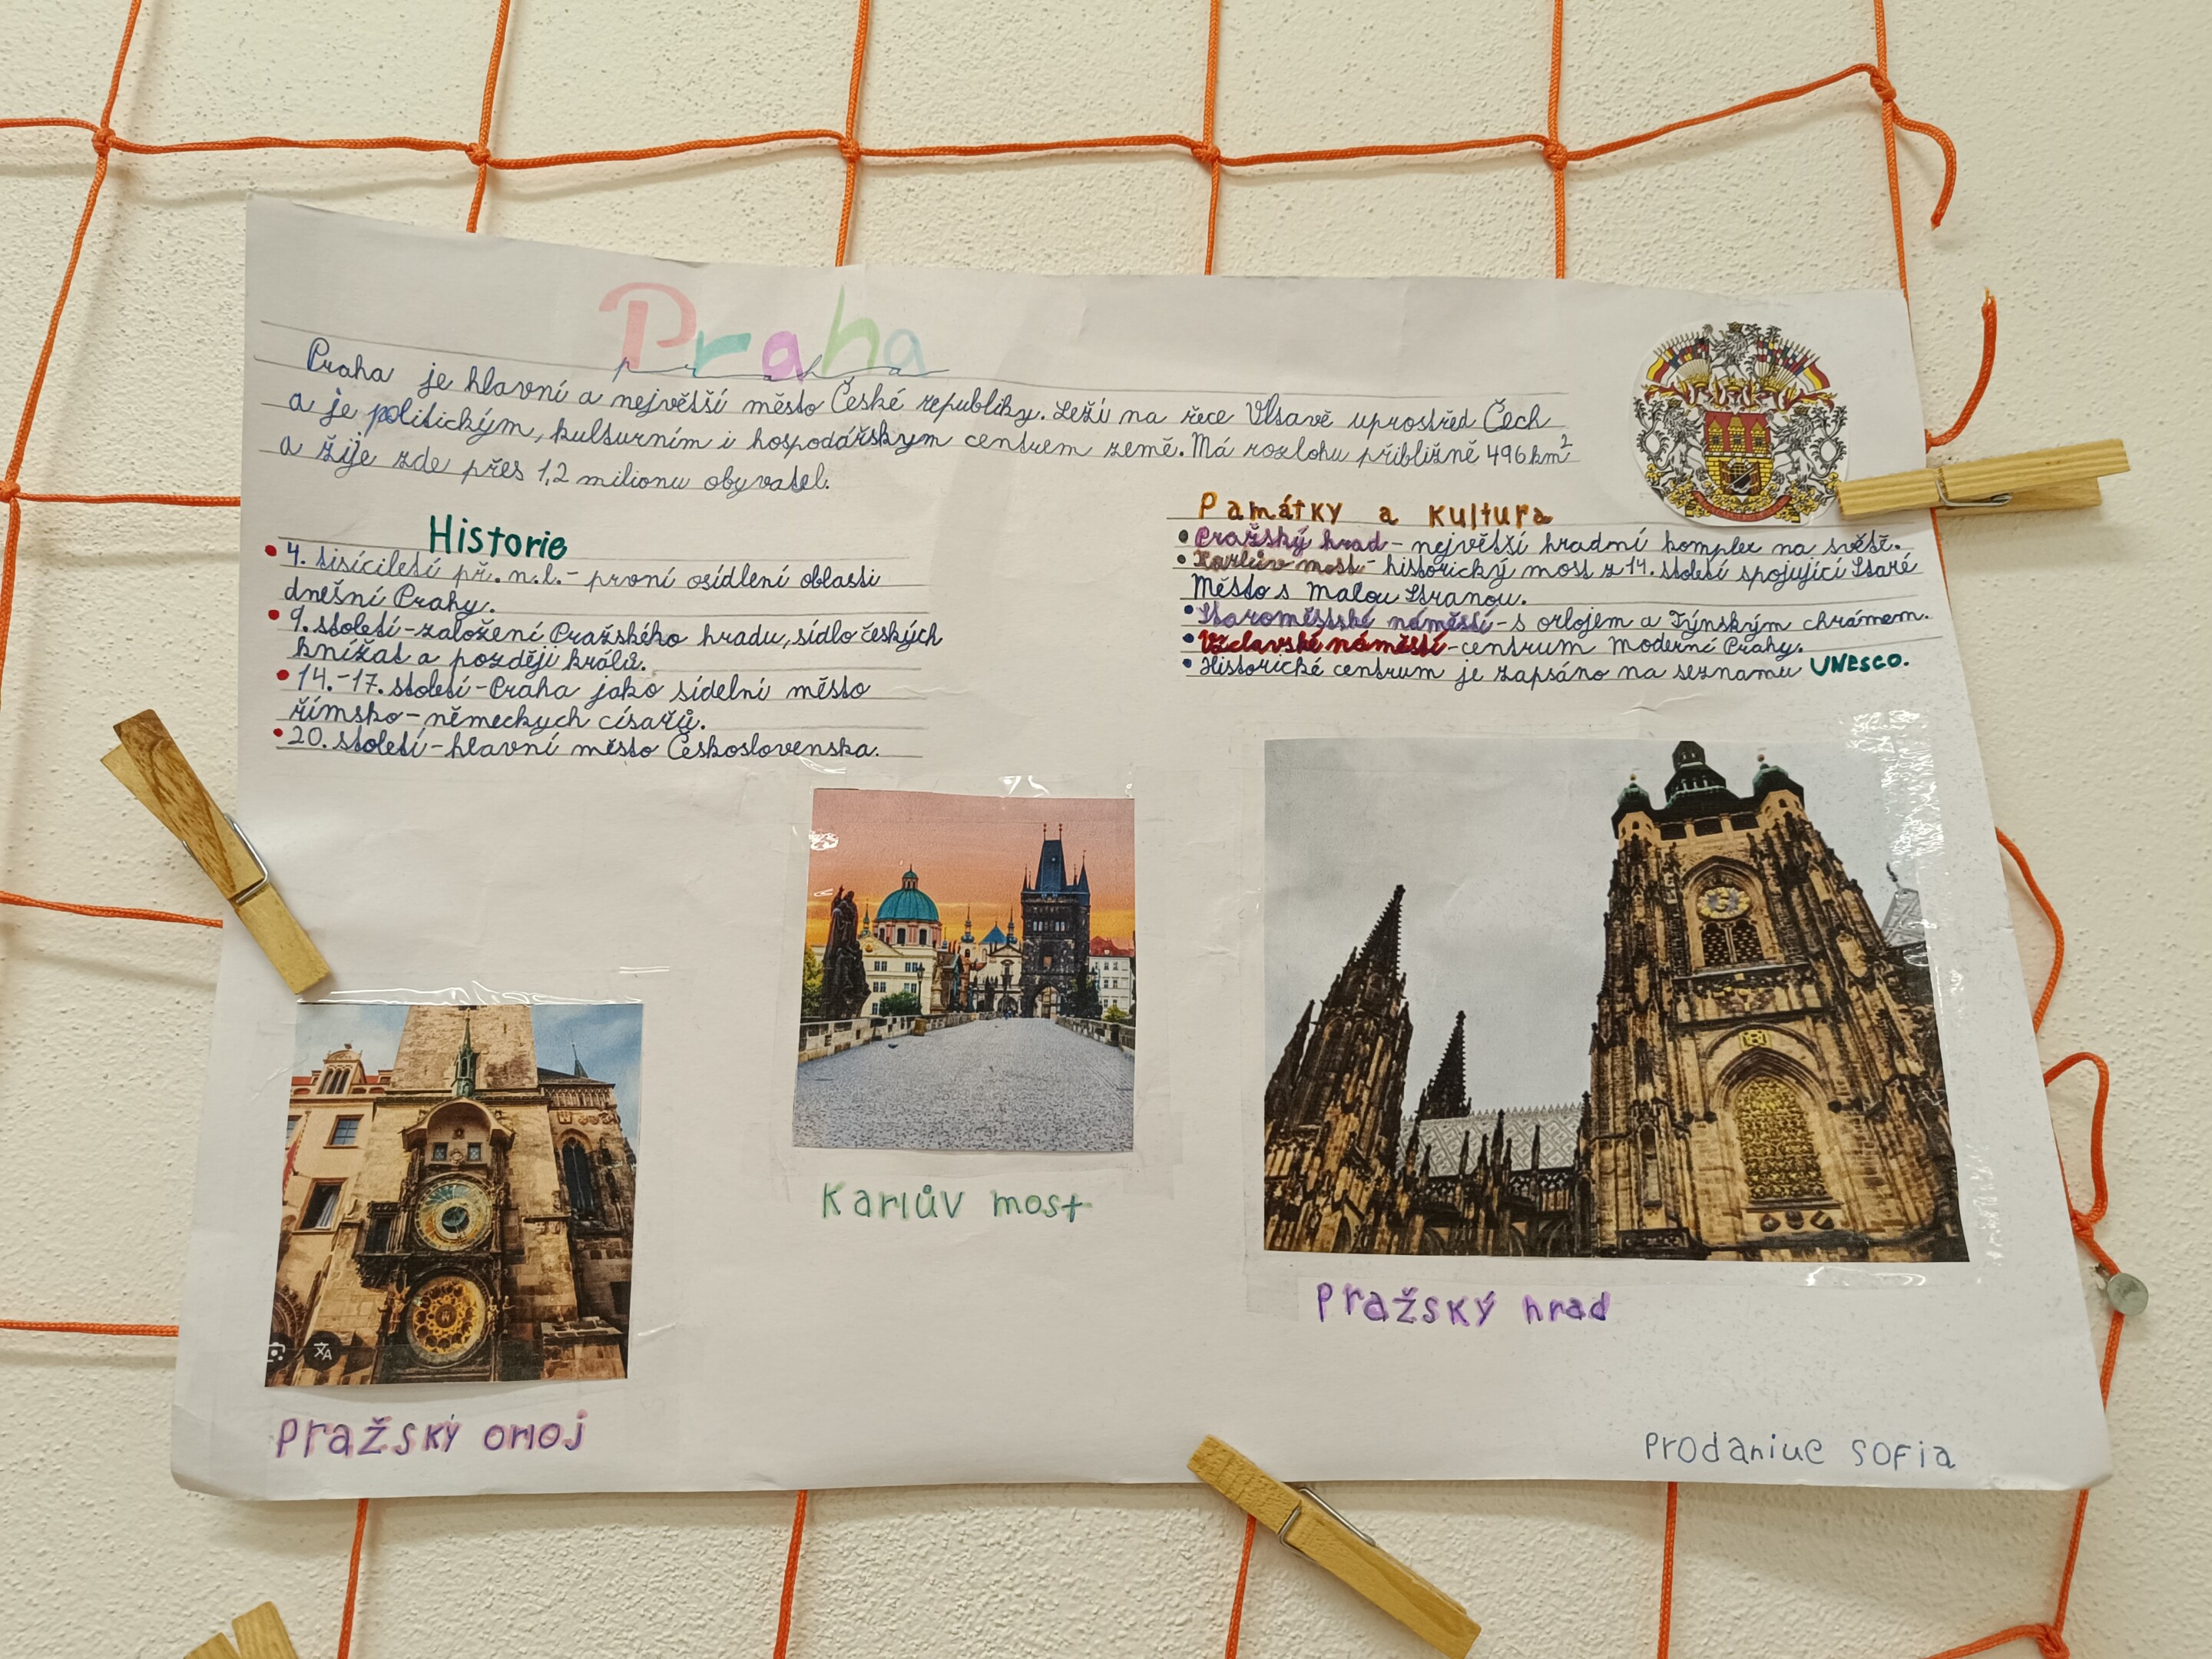 Praha
Praha
Praha je hlavní a největší město České republiky. Leží na řece Vltavě uprostřed Čech
a je politickým, kulturním i hospodářskym centrem země. Má rozlohu přibližně 496 km²
a žije zde přes 1,2 milionu obyvatel.
Historie
• 4. tisíciletí př. n.l. - první osídlení oblasti
dnešní Prahy.
• 9. století - založení Pražského hradu, sídlo českých
knížat a později králů.
• 14.-17. století - Praha jako sídelní město
římsko - německych císařů.
• 20. století - hlavní město Československa.
Památky a kultura
• Pražský hrad - největší hradní komplex na světě.
• Karlův most - historický most z 14. století spojující Staré
Město s Malou Stranou.
• Staroměstské náměstí - s orlojem a Týnským chrámem.
• Václavské náměstí - centrum moderní Prahy.
• Historické centrum je zapsáno na seznamu UNESCO.
Karlův most
Pražský hrad
Pražský orloj
Prodaniuc Sofia